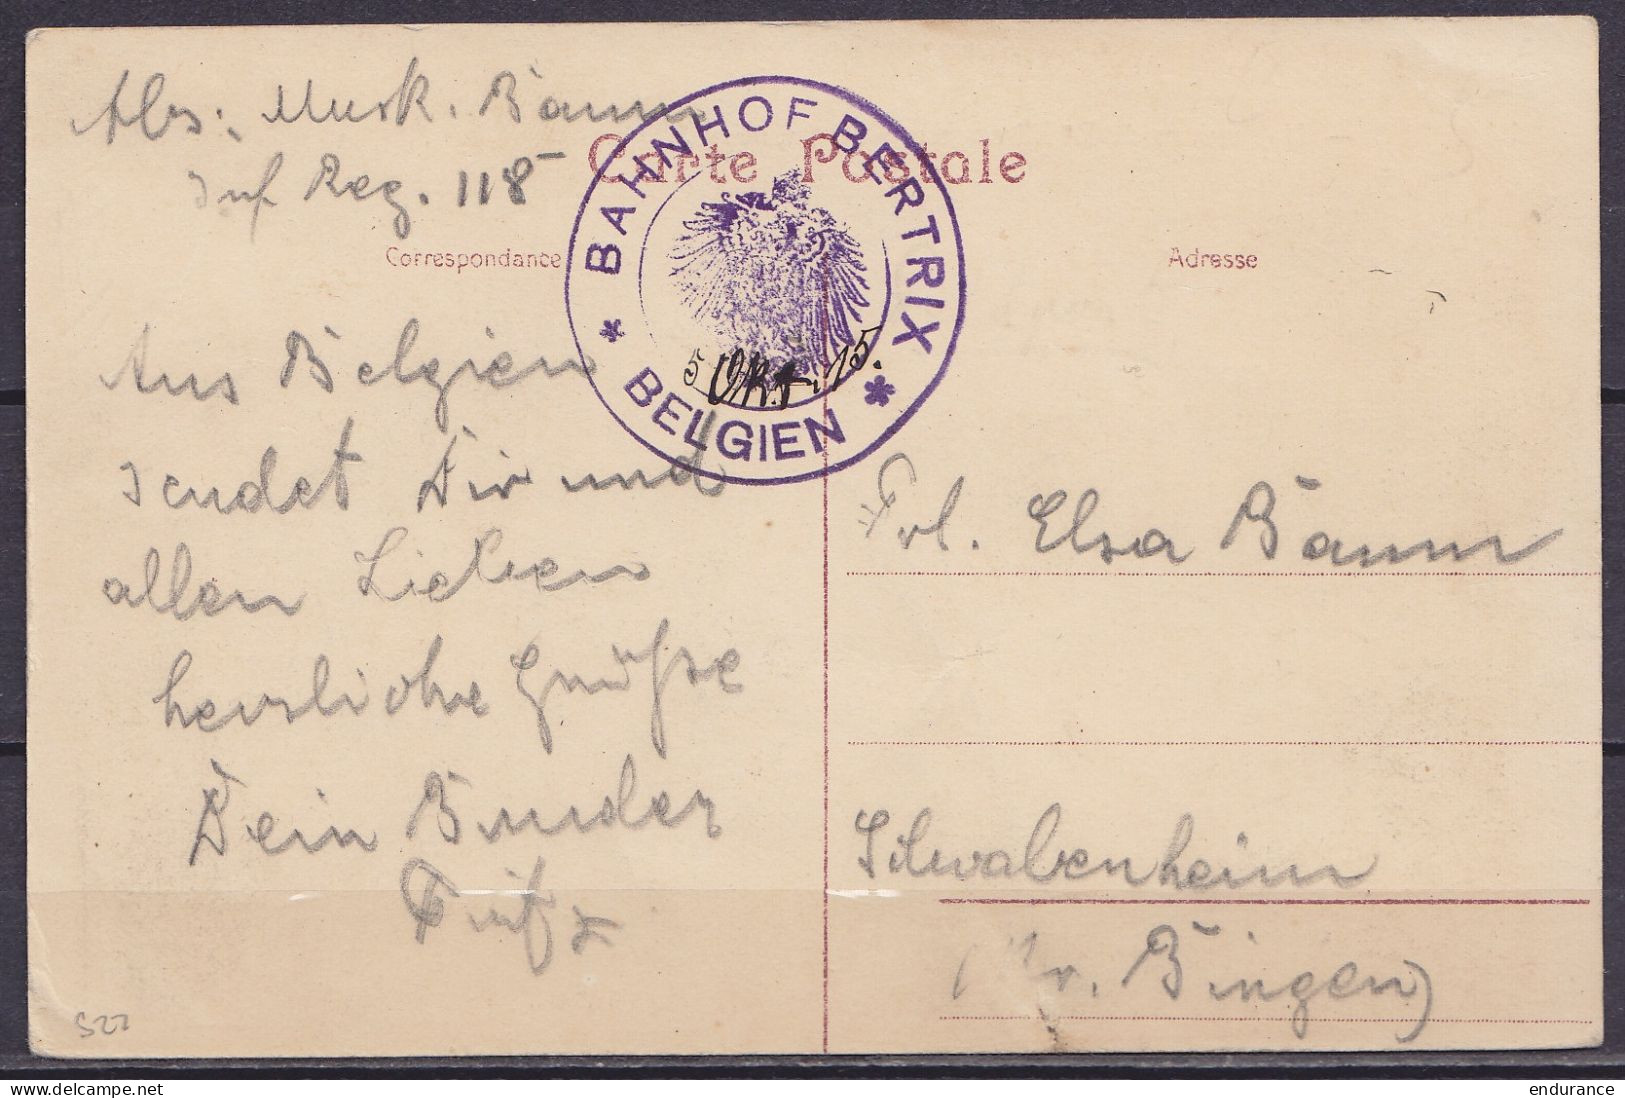 Abs: Musk. Baum
Inf Reg. 118
Carte Postale
Correspondance
Adresse
BAHNHOF BERTRIX
* BELGIEN *
5 Okt. 15.
Aus Belgien
sendet Dir und
allen Lieben
herzliche Grüße
Dein Bruder
Fritz
Frl. Elsa Baum
Schwabenheim
(Kr. Bingen)
522
endurance